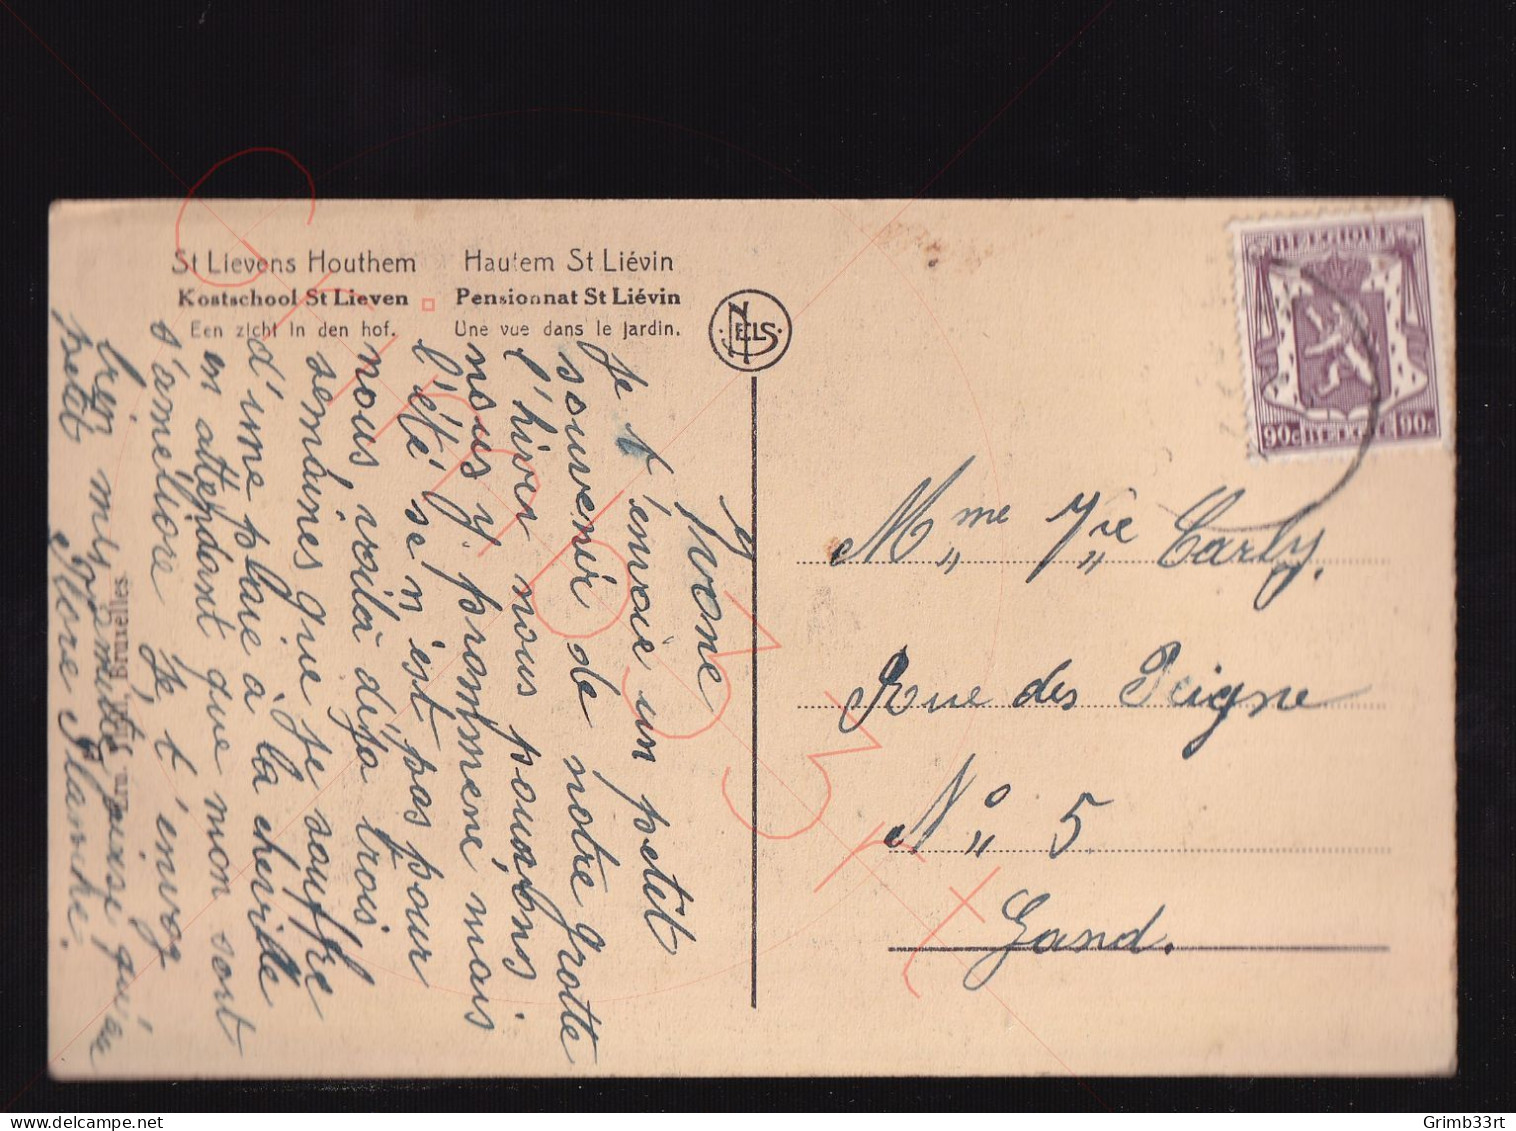 St Lievens Houthem
Kostschool St Lieven
Een zicht in den hof.
Hautem St Liévin
Pensionnat St Liévin
Une vue dans le jardin.
NELS
BELGIQUE
90c BELGIE 90c
Yvone
Je t'envoie un petit
souvenir de notre grotte
l'hiver nous pouvons
nous y
mais
l'été se n'est pas pour
nous, voilà déja trois
semaines que je souffre
d'une plaie à la cheville
en attendant que mon sort
s'améliore je t'envoy
petit
Flore Blanche.
Bruxelles.
Mme Vve Carly.
Rue des Peigne
No 5.
Gand.
Grimb33rt
Grimb33rt